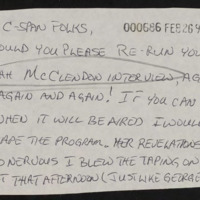 C-SPAN FOLKS, 000686 FEB 26 9
OULD YOU PLEASE RE-RUN YOU
AH MCCLENDON INTERVIEW, AG
AGAIN AND AGAIN! IF YOU CAN
WHEN IT WILL BE AIRED I WOUL
APE THE PROGRAM. HER REVELATIONS
O NERVOUS I BLEW THE TAPING ON
T THAT AFTERNOON (JUST LIKE GEORGE